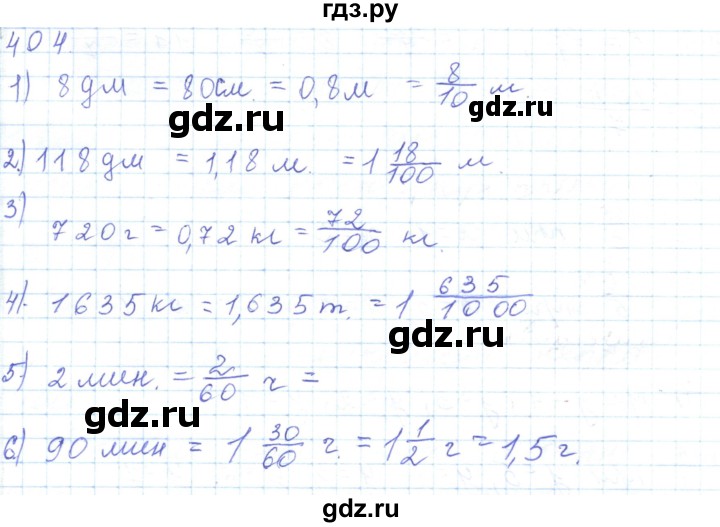 гдз.ру
404.
1) 8 дм = 80 см. = 0,8 м = 8/10 м.
gdz.ru gdz.ru
2) 118 дм = 1,18 м. = 1 18/100 м.
3)
720 г = 0,72 кг = 72/100 кг.
gdz.ru gdz.ru
4). 1635 кг = 1,635 т. = 1 635/1000
gdz.ru
5) 2 мин. = 2/60 ч =
gdz.ru
6) 90 мин = 1 30/60 г. = 1 1/2 г = 1,5 г.
gdz.ru